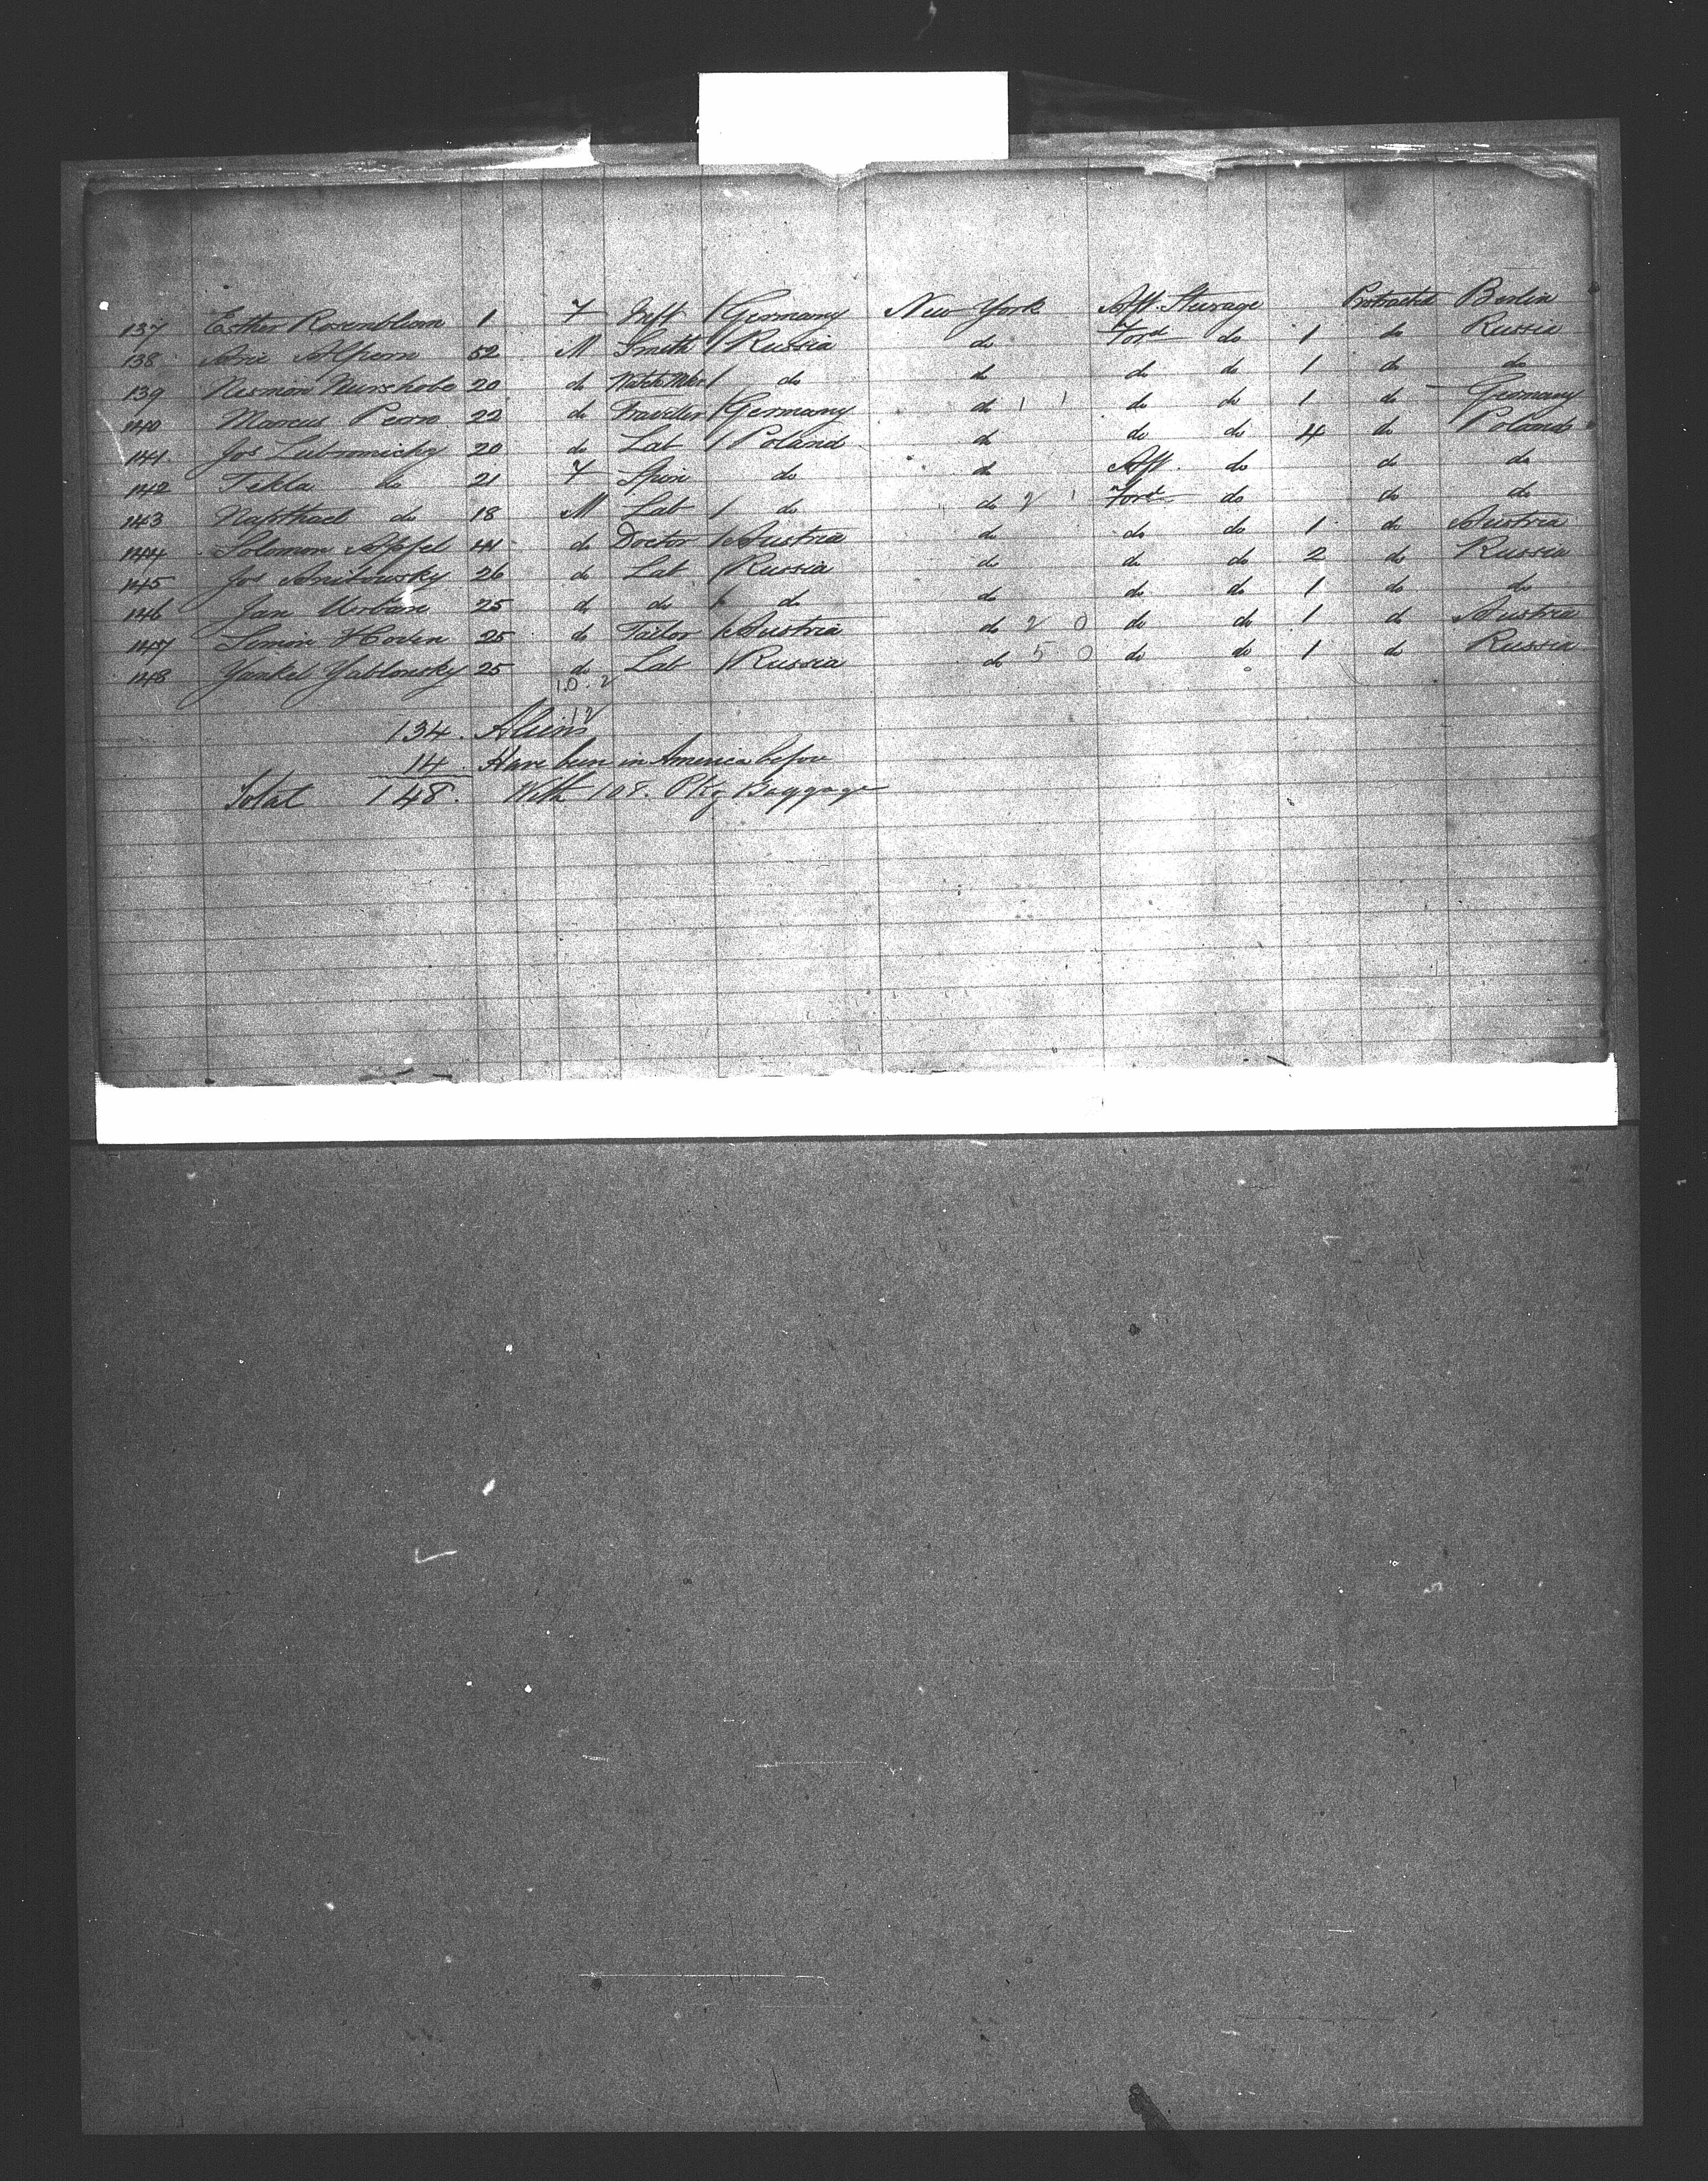 137 Esther Rosenbloom 1 F Inft / Germany New York Aft. Steerage Protracted Berlin
138 Arie Alpern 52 M Smith / Russia do Ford do 1 do Russia
139 20 do / do do do do 1 do do
140 Marcus Perro 22 do Traveller / Germany do 1 1 do do 1 do Germany
141 Jos Lubromichy 20 do Lab / Poland do do do 4 do Poland
142 Tekla do 21 F Spin do do Aft. do do do
143 Napthael do 18 M Lab / do do 2 1 Ford do do do
144 Solomon Apfel 44 do Doctor / Austria do do do 1 do Austria
145 Jos Anitowsky 26 do Lab / Russia do do do 2 do Russia
146 Jan Urban 25 do do / do do do do 1 do do
147 Simon Hoven 25 do Tailor / Austria do 2 0 do do 1 do Austria
148 Yankel Yablonsky 25 do Lab / Russia do 5 0 do do 1 do Russia
10. 2
12
134. Aliens
14. Have been in America before
Total 148. With 108. Pkg Baggage